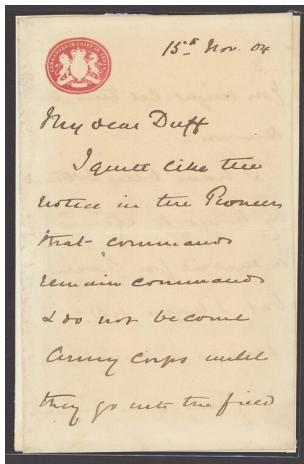 COMMANDER IN CHIEF IN INDIA
15th Nov. 04
My dear Duff
I quite like the
notice in the Pioneer
that commands
remain commands
& do not become
Army Corps until
they go into the field